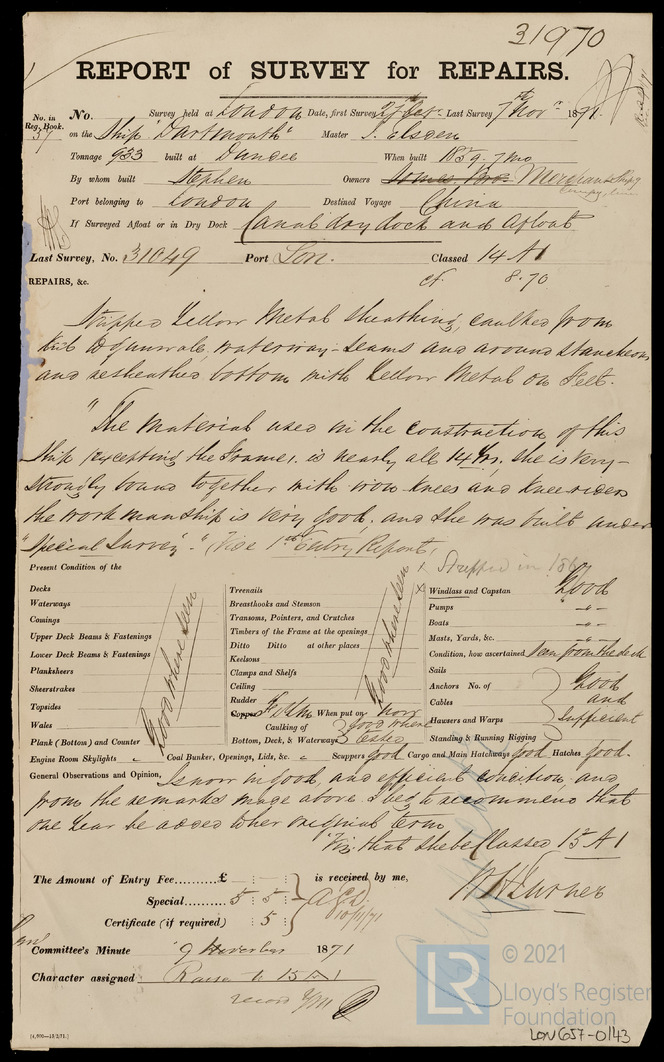 31970
REPORT of SURVEY for REPAIRS.
No. in Reg. Book. No. Survey held at London Date, first Survey 27 Oct. Last Survey 7th Novr. 1871.
57 on the Ship "Dartmouth" Master J. Elsden
Tonnage 933 built at Dundee When built 1859. 7mo
By whom built Stephen Owners Somes Bro Merchant Shipg Compy
Port belonging to London Destined Voyage China
If Surveyed Afloat or in Dry Dock Canal dry dock and afloat
Last Survey, No. 31049 Port Lon. Classed 14 A1
REPAIRS, &c. cf. 8.70
Stripped Yellow Metal sheathing, caulked from
keel to gunwale, waterway-seams and around stancheons
and resheathed bottom with Yellow Metal on Felt.
"The material used in the construction of this
Ship (excepting the Frame). is nearly all 14 Yrs. she is very-
strongly bound together with iron knees and knee riders
the workmanship is very good, and she was built under
"Special Survey"." (Vide 1st Entry Report)
Present Condition of the
x Stripped in 186
Decks
Waterways
Comings
Upper Deck Beams & Fastenings
Lower Deck Beams & Fastenings
Planksheers
Sheerstrakes
Topsides
Wales
Plank (Bottom) and Counter
Good where seen
Engine Room Skylights „ Coal Bunker, Openings, Lids, &c. „ Scuppers good Cargo and Main Hatchways good Hatches good.
Treenails
Breasthooks and Stemson
Transoms, Pointers, and Crutches
Timbers of the Frame at the openings
Ditto Ditto at other places
Keelsons
Clamps and Shelfs
Ceiling
Rudder
Good where seen
Copper F & YM When put on now
Caulking of Bottom, Deck, & Waterways good where tested
x Windlass and Capstan Good
Pumps -"-
Boats -"-
Masts, Yards, &c. -"-
Condition, how ascertained Seen from the deck
Sails
Anchors No. of
Cables
Hawsers and Warps
Standing & Running Rigging
Good and Sufficient
General Observations and Opinion, Is now in good, and efficient condition, and
from the remarks made above I beg to recommend that
one Year be added to her original term
Viz. that she be Classed 15 A1
The Amount of Entry Fee..........£ : : is received by me,
Special.......... 5 : 5 :
Certificate (if required) : 5 :
10/11/71
W H Turner
Committee's Minute 9 November 1871
Character assigned Raise to 15 A1
record
[4,000—15/2/71.]
LR © 2021
Lloyd's Register
Foundation
LON657-0143